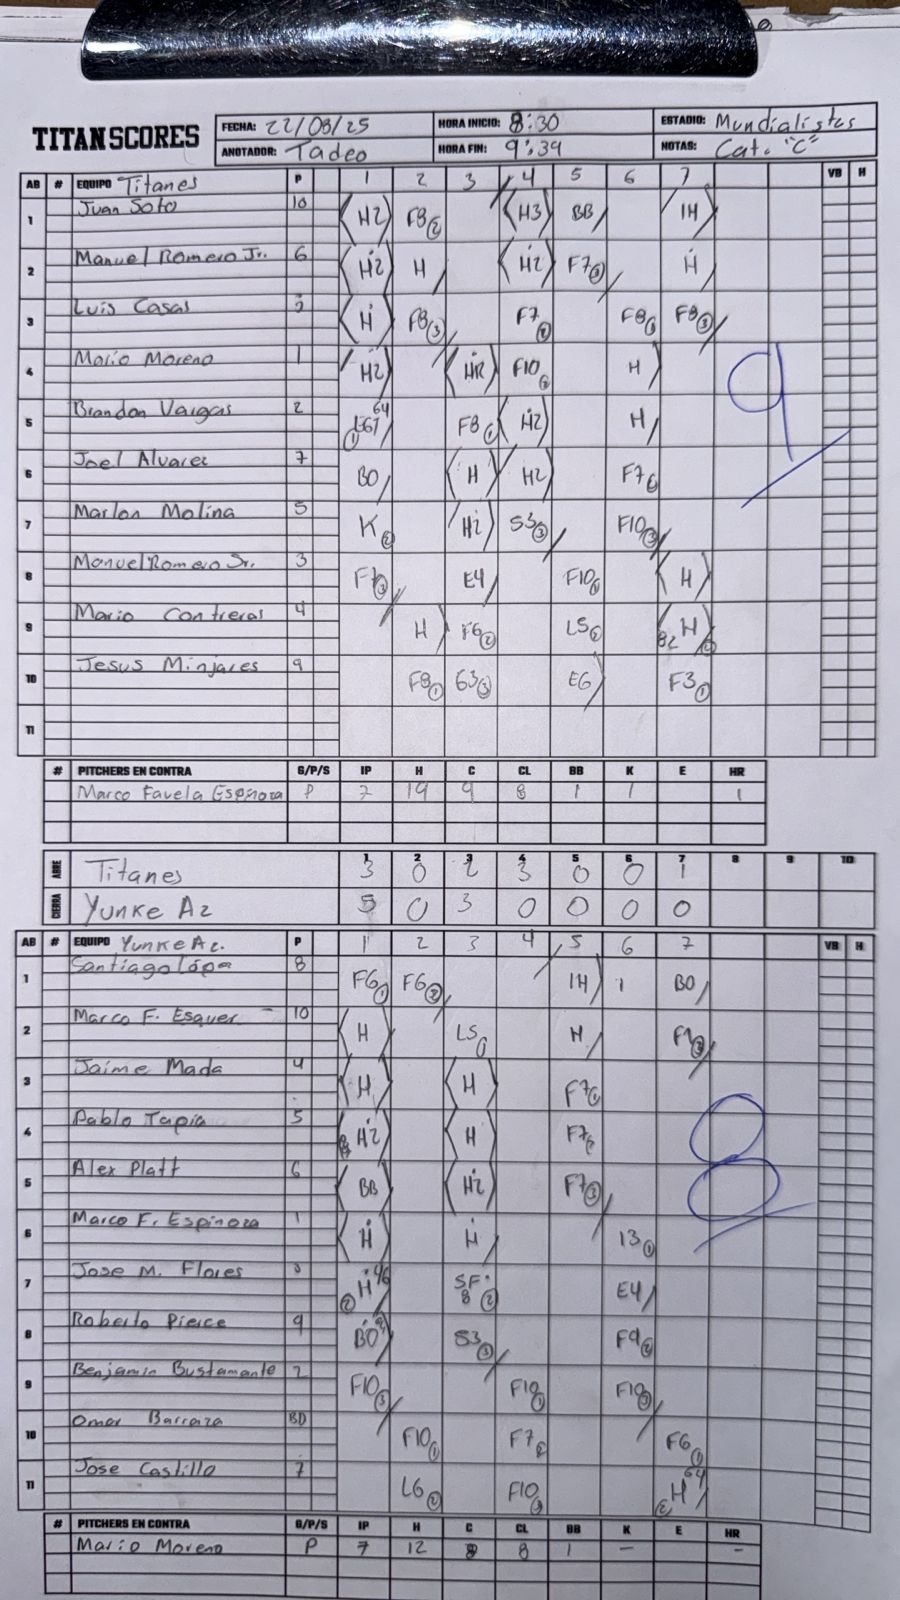 TITANSCORES
FECHA: 22/08/25 HORA INICIO: 8:30 ESTADIO: Mundialistas
ANOTADOR: Tadeo HORA FIN: 9:39 NOTAS: Cat. "C"
AB # EQUIPO Titanes P 1 2 3 4 5 6 7 VB H
1 Juan Soto 10 H2 F8② H3 BB IH
2 Manuel Romero Jr. 6 H2 H H2 F7③ H
3 Luis Casas H F8③ F7① F8① F8③
4 Mario Moreno 1 H2 HR F10② H
5 Brandon Vargas 2 64 ① F8① H2 H
6 Joel Alvarez 7 BO H H2 F7②
7 Marlon Molina 5 K② H2 53③ F10③
8 Manuel Romero Sr. 3 F7③ E4 F10① H
9 Mario Contreras 4 H F6② L5② 82 H②
10 Jesus Minjares 9 F8① 63③ E6 F3①
11
9
# PITCHERS EN CONTRA G/P/S IP H C CL BB K E HR
Marco Favela Espinoza P 7 19 9 8 1 1 1
1 2 3 4 5 6 7 8 9 10
ABRE Titanes 3 0 2 3 0 0 1
CIERRA Yunke Az 5 0 3 0 0 0 0
AB # EQUIPO Yunke Az. P 1 2 3 4 5 6 7 VB H
1 Santiago López 8 F6① F6③ IH 1 BO
2 Marco F. Esquer 10 H L5① H F1③
3 Jaime Mada 4 H H F7①
4 Pablo Tapia 5 H2 H F7②
5 Alex Platt 6 BB H2 F7③
6 Marco F. Espinoza 1 H H 13①
7 Jose M. Flores H 46 ② SF 8 ② E4
8 Roberto Pierce 9 BO 53③ F9②
9 Benjamin Bustamante 2 F10③ F10① F10③
10 Omar Barraza BD F10① F7② F6①
11 Jose Castillo 7 L6② F10③ H 64 ②
8
# PITCHERS EN CONTRA G/P/S IP H C CL BB K E HR
Mario Moreno P 7 12 8 8 1 - -